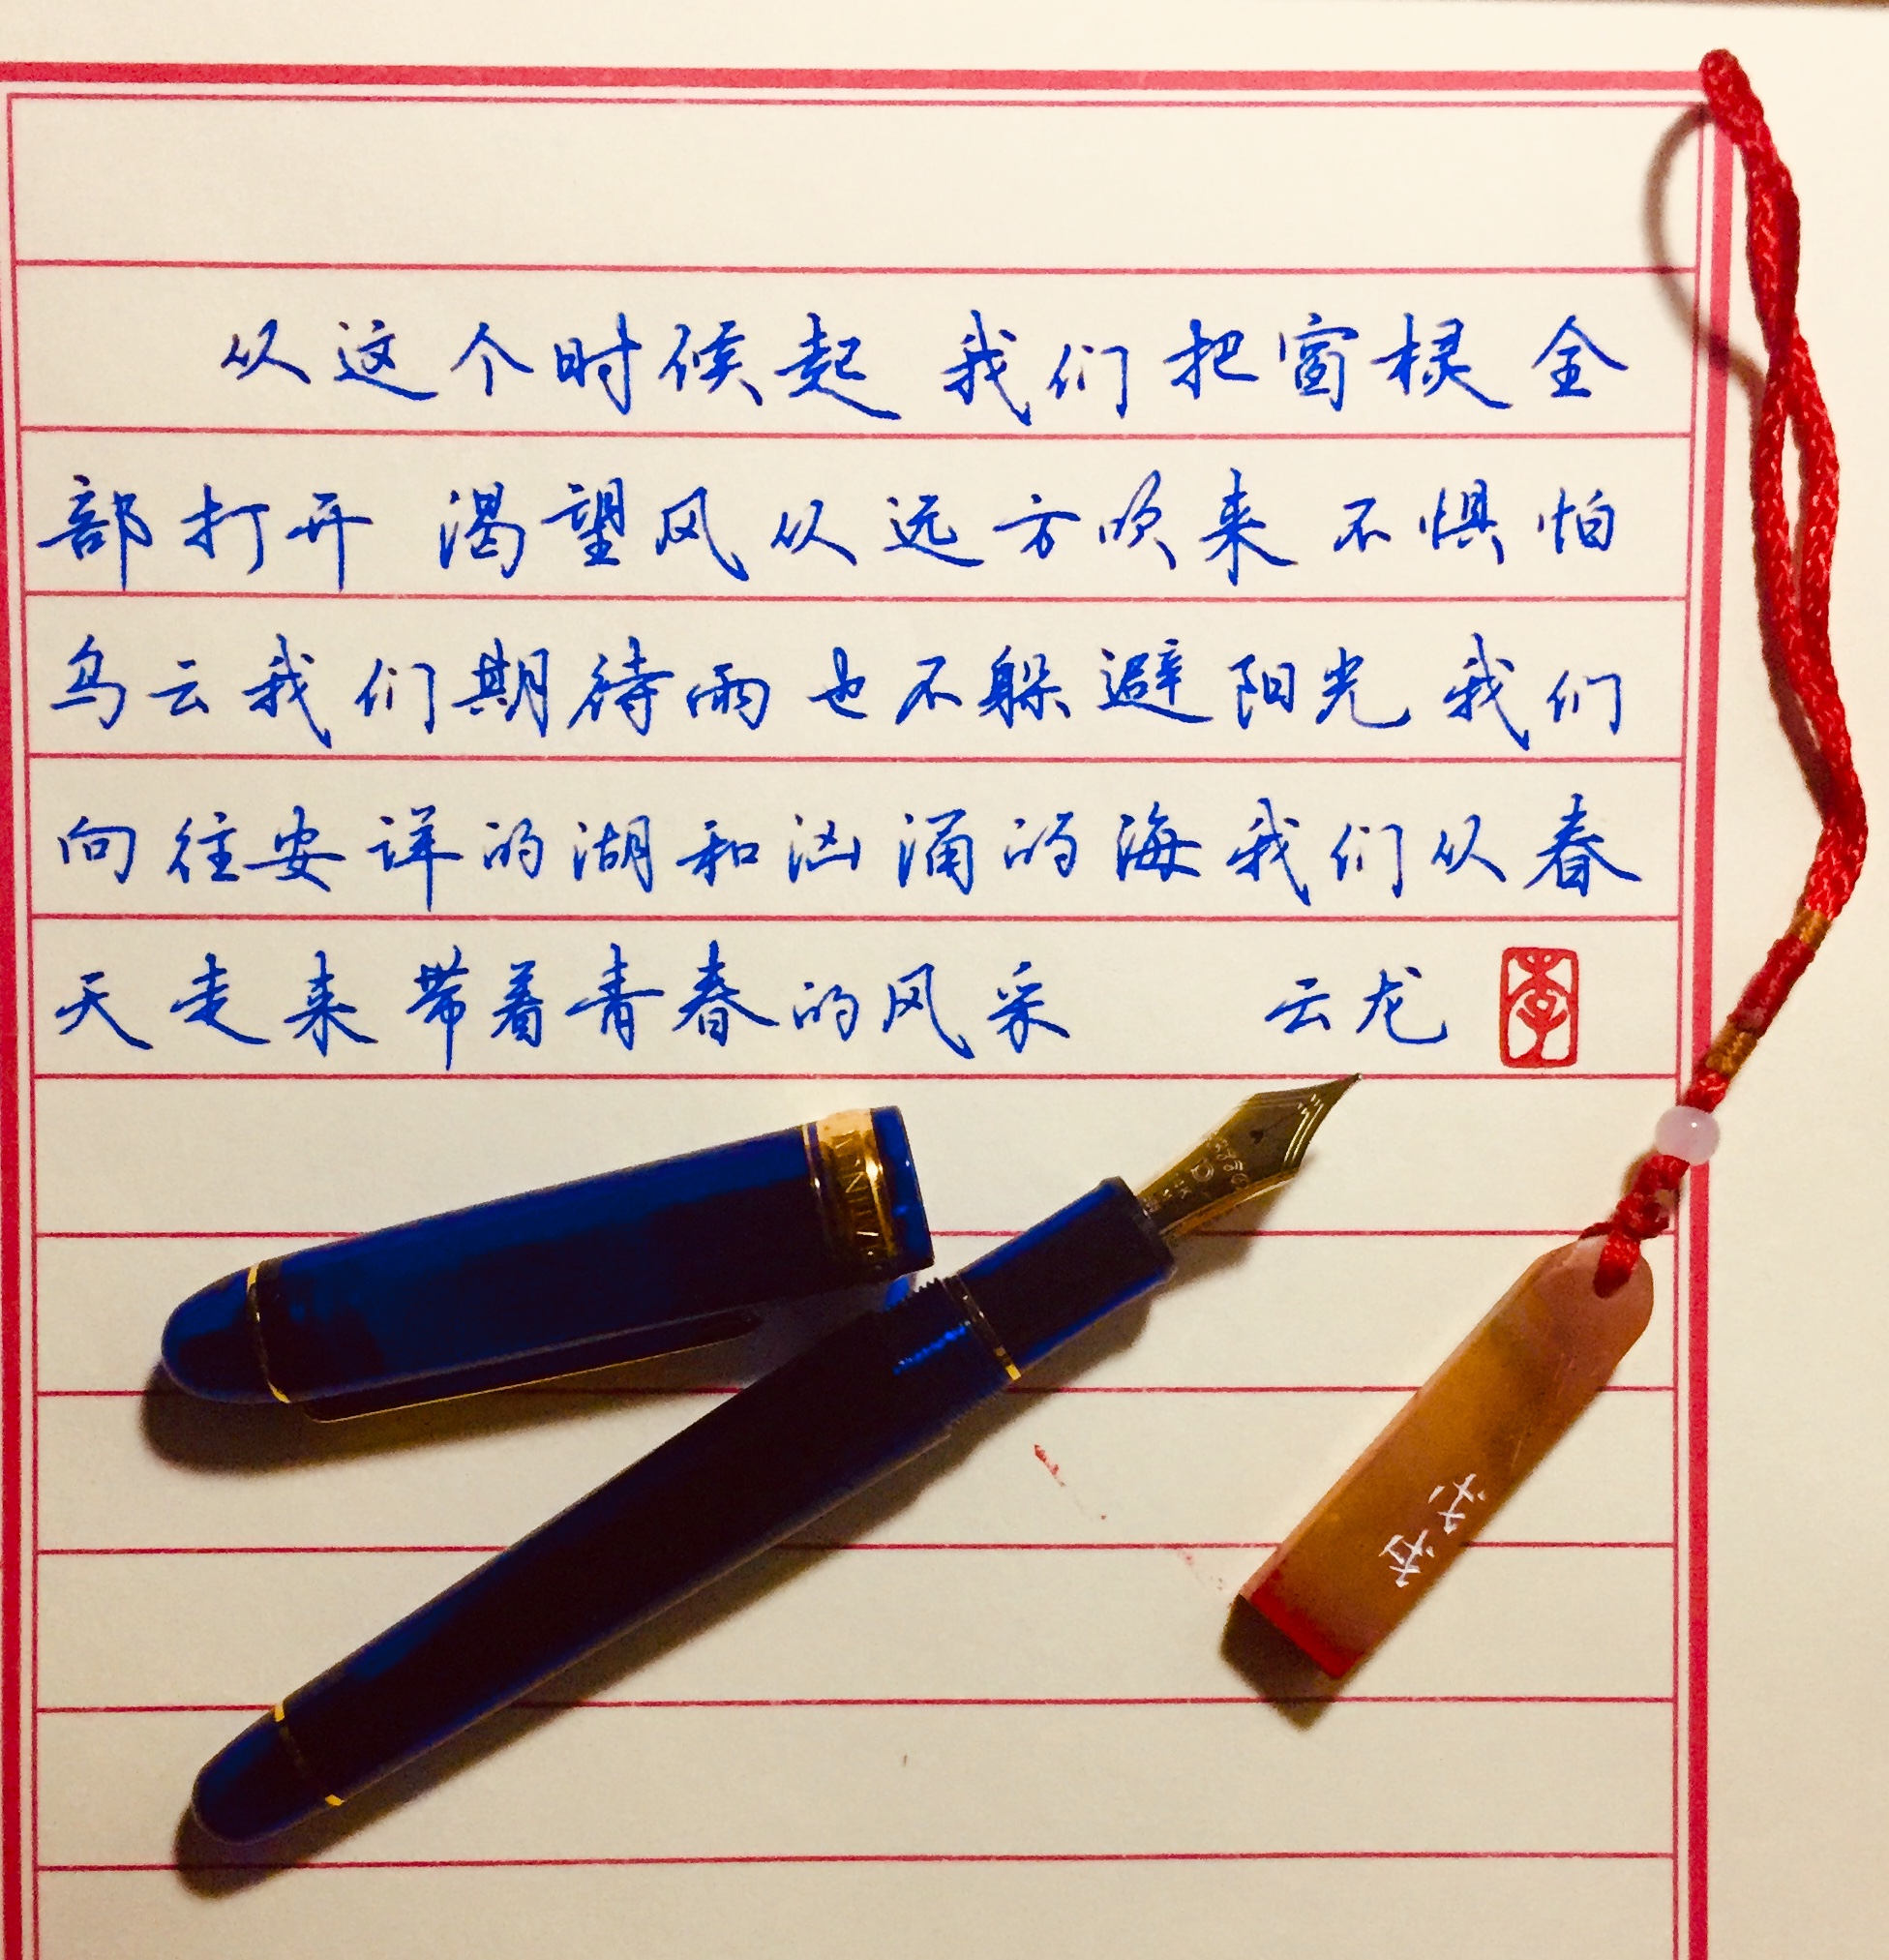 从这个时候起 我们把窗棂全
部打开 渴望风从远方吹来 不惧怕
乌云我们期待雨也不躲避阳光 我们
向往安详的湖和汹涌的海我们从春
天走来带着青春的风采 云龙
李